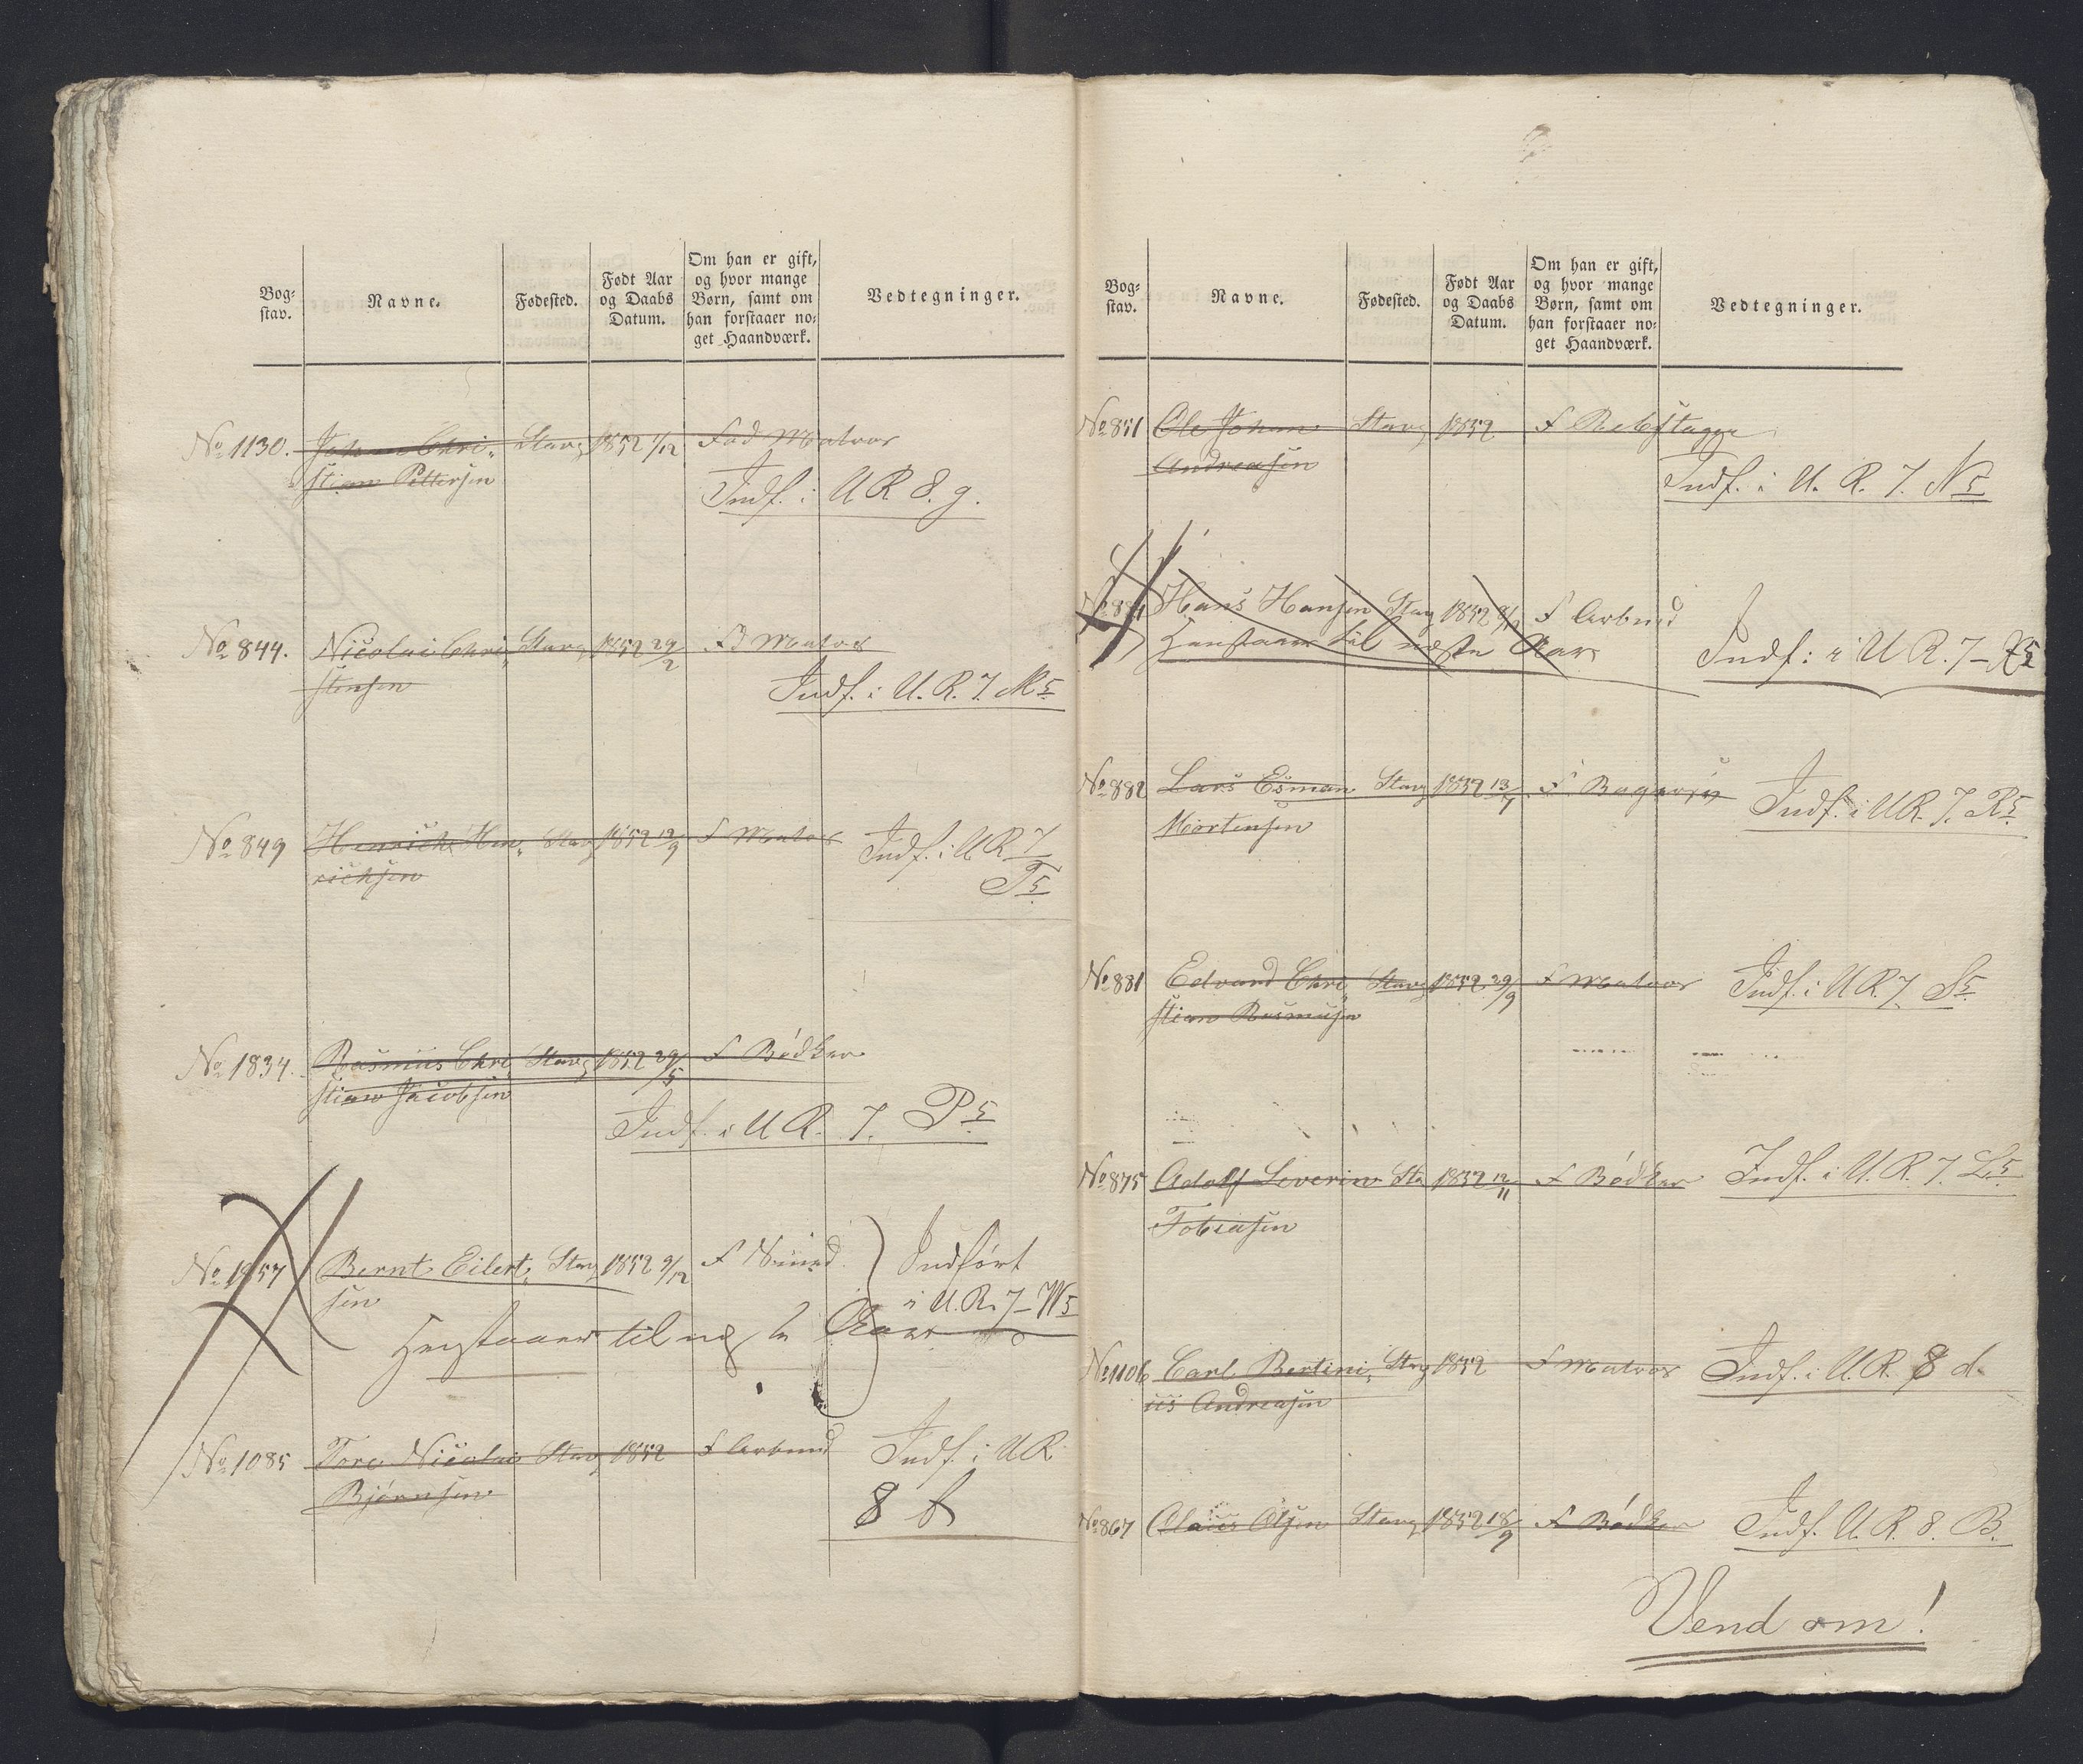 Bog-
stav.
Navne.
Fødested.
Født Aar
og Daabs
Datum.
Om han er gift,
og hvor mange
Børn, samt om
han forstaaer no-
get Haandværk.
Vedtegninger.
No 1130. Johan Chri- Stavg 1852 1/12 Fad Matros
stian Pettersen
Indf. i U R 8. g.
No 844. Nicolai Chri- Stavg 1852 29/2 F Matros
stensen
Indf. i U. R. 7. M 5.
No 849 Henrich Hen- Stavg 1852 12/9 F Matros Indf. i U R 7
richsen
T 5.
No 1834. Rasmus Chri- Stavg 1852 29/5 F Bødker
stian Jacobsen
Indf. i U R. 7. P 5.
No 1957 Bernt Eilert- Stavg 1852 9/12 F Indført
sen
i U. R. 7 - W 5
Henstaaer til næste Aar
No 1085 Tore Nicolai Stavg 1852 F Arbmd Indf. i U R
Bjørnsen
8 b
Bog-
stav.
Navne.
Fødested.
Født Aar
og Daabs
Datum.
Om han er gift,
og hvor mange
Børn, samt om
han forstaaer no-
get Haandværk.
Vedtegninger.
No 851 Ole Johan Stavg 1852 F Rebslager
Andreasen
Indf. i U. R. 7. N 5.
Hans Hansen Stavg 1852 F Arbmd
Henstaaer til næste Aar Indf: i U R. 7 -
No 882 Lars Esman Stavg 1852 13/7 F Bager Indf. i U R. 7. R 5.
Mortensen
No 881 Edvard Chri- Stavg 1852 29/9 F Matros Indf. i U R 7 S 5.
stian Rasmusen
No 875 Adolf Severin Sta 1852 12/11 F Bødker Indf. i U. R. 7. L 5.
Tobiasen
No 1106 Carl Bertini- Stavg 1852 F Matros Indf. i U. R. 8 d.
us Andreasen
No 867 Olaus Olsen Stavg 1852 18/9 F Bødker Indf. U. R. 8. B.
Vend om!